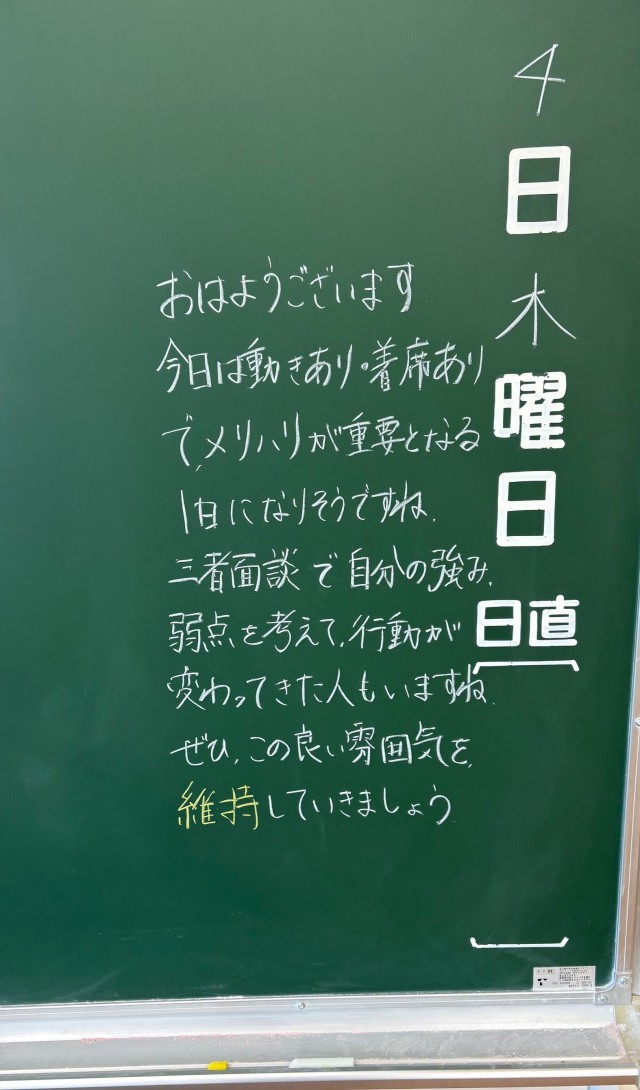 4日木曜日
日直
おはようございます
今日は動きあり・着席あり
で、メリハリが重要となる
1日になりそうですね。
三者面談で自分の強み、
弱点を考えて、行動が
変わってきた人もいますね。
ぜひ、この良い雰囲気を、
維持していきましょう。